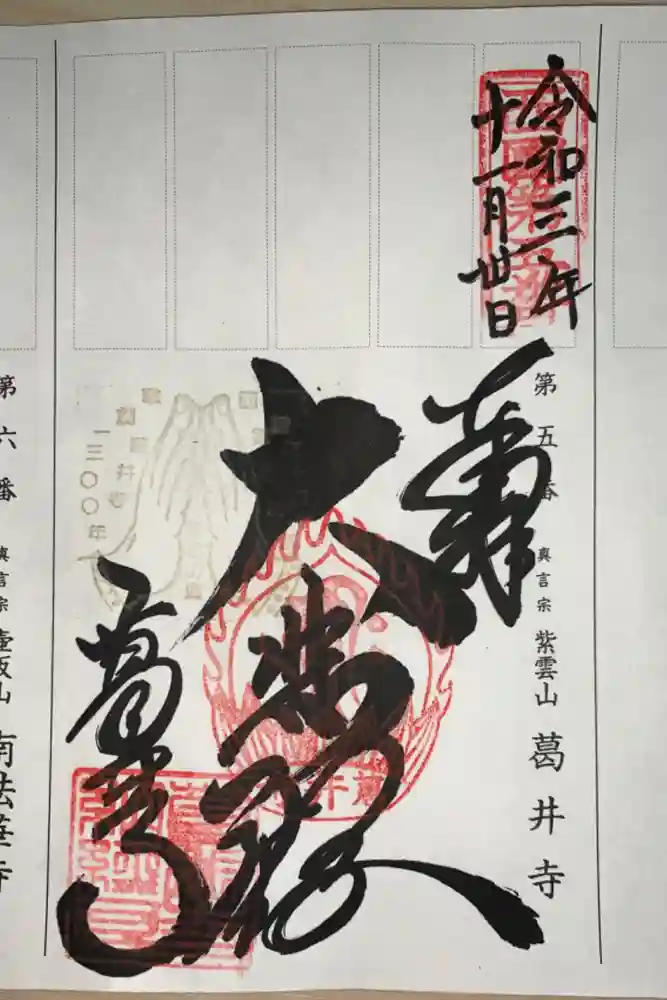 令和三年
十一月卅日
奉拝
第五番 真言宗 紫雲山 葛井寺
大悲殿
葛井寺
葛井寺
一三〇〇年
第六番 真言宗 壺阪山 南法華寺